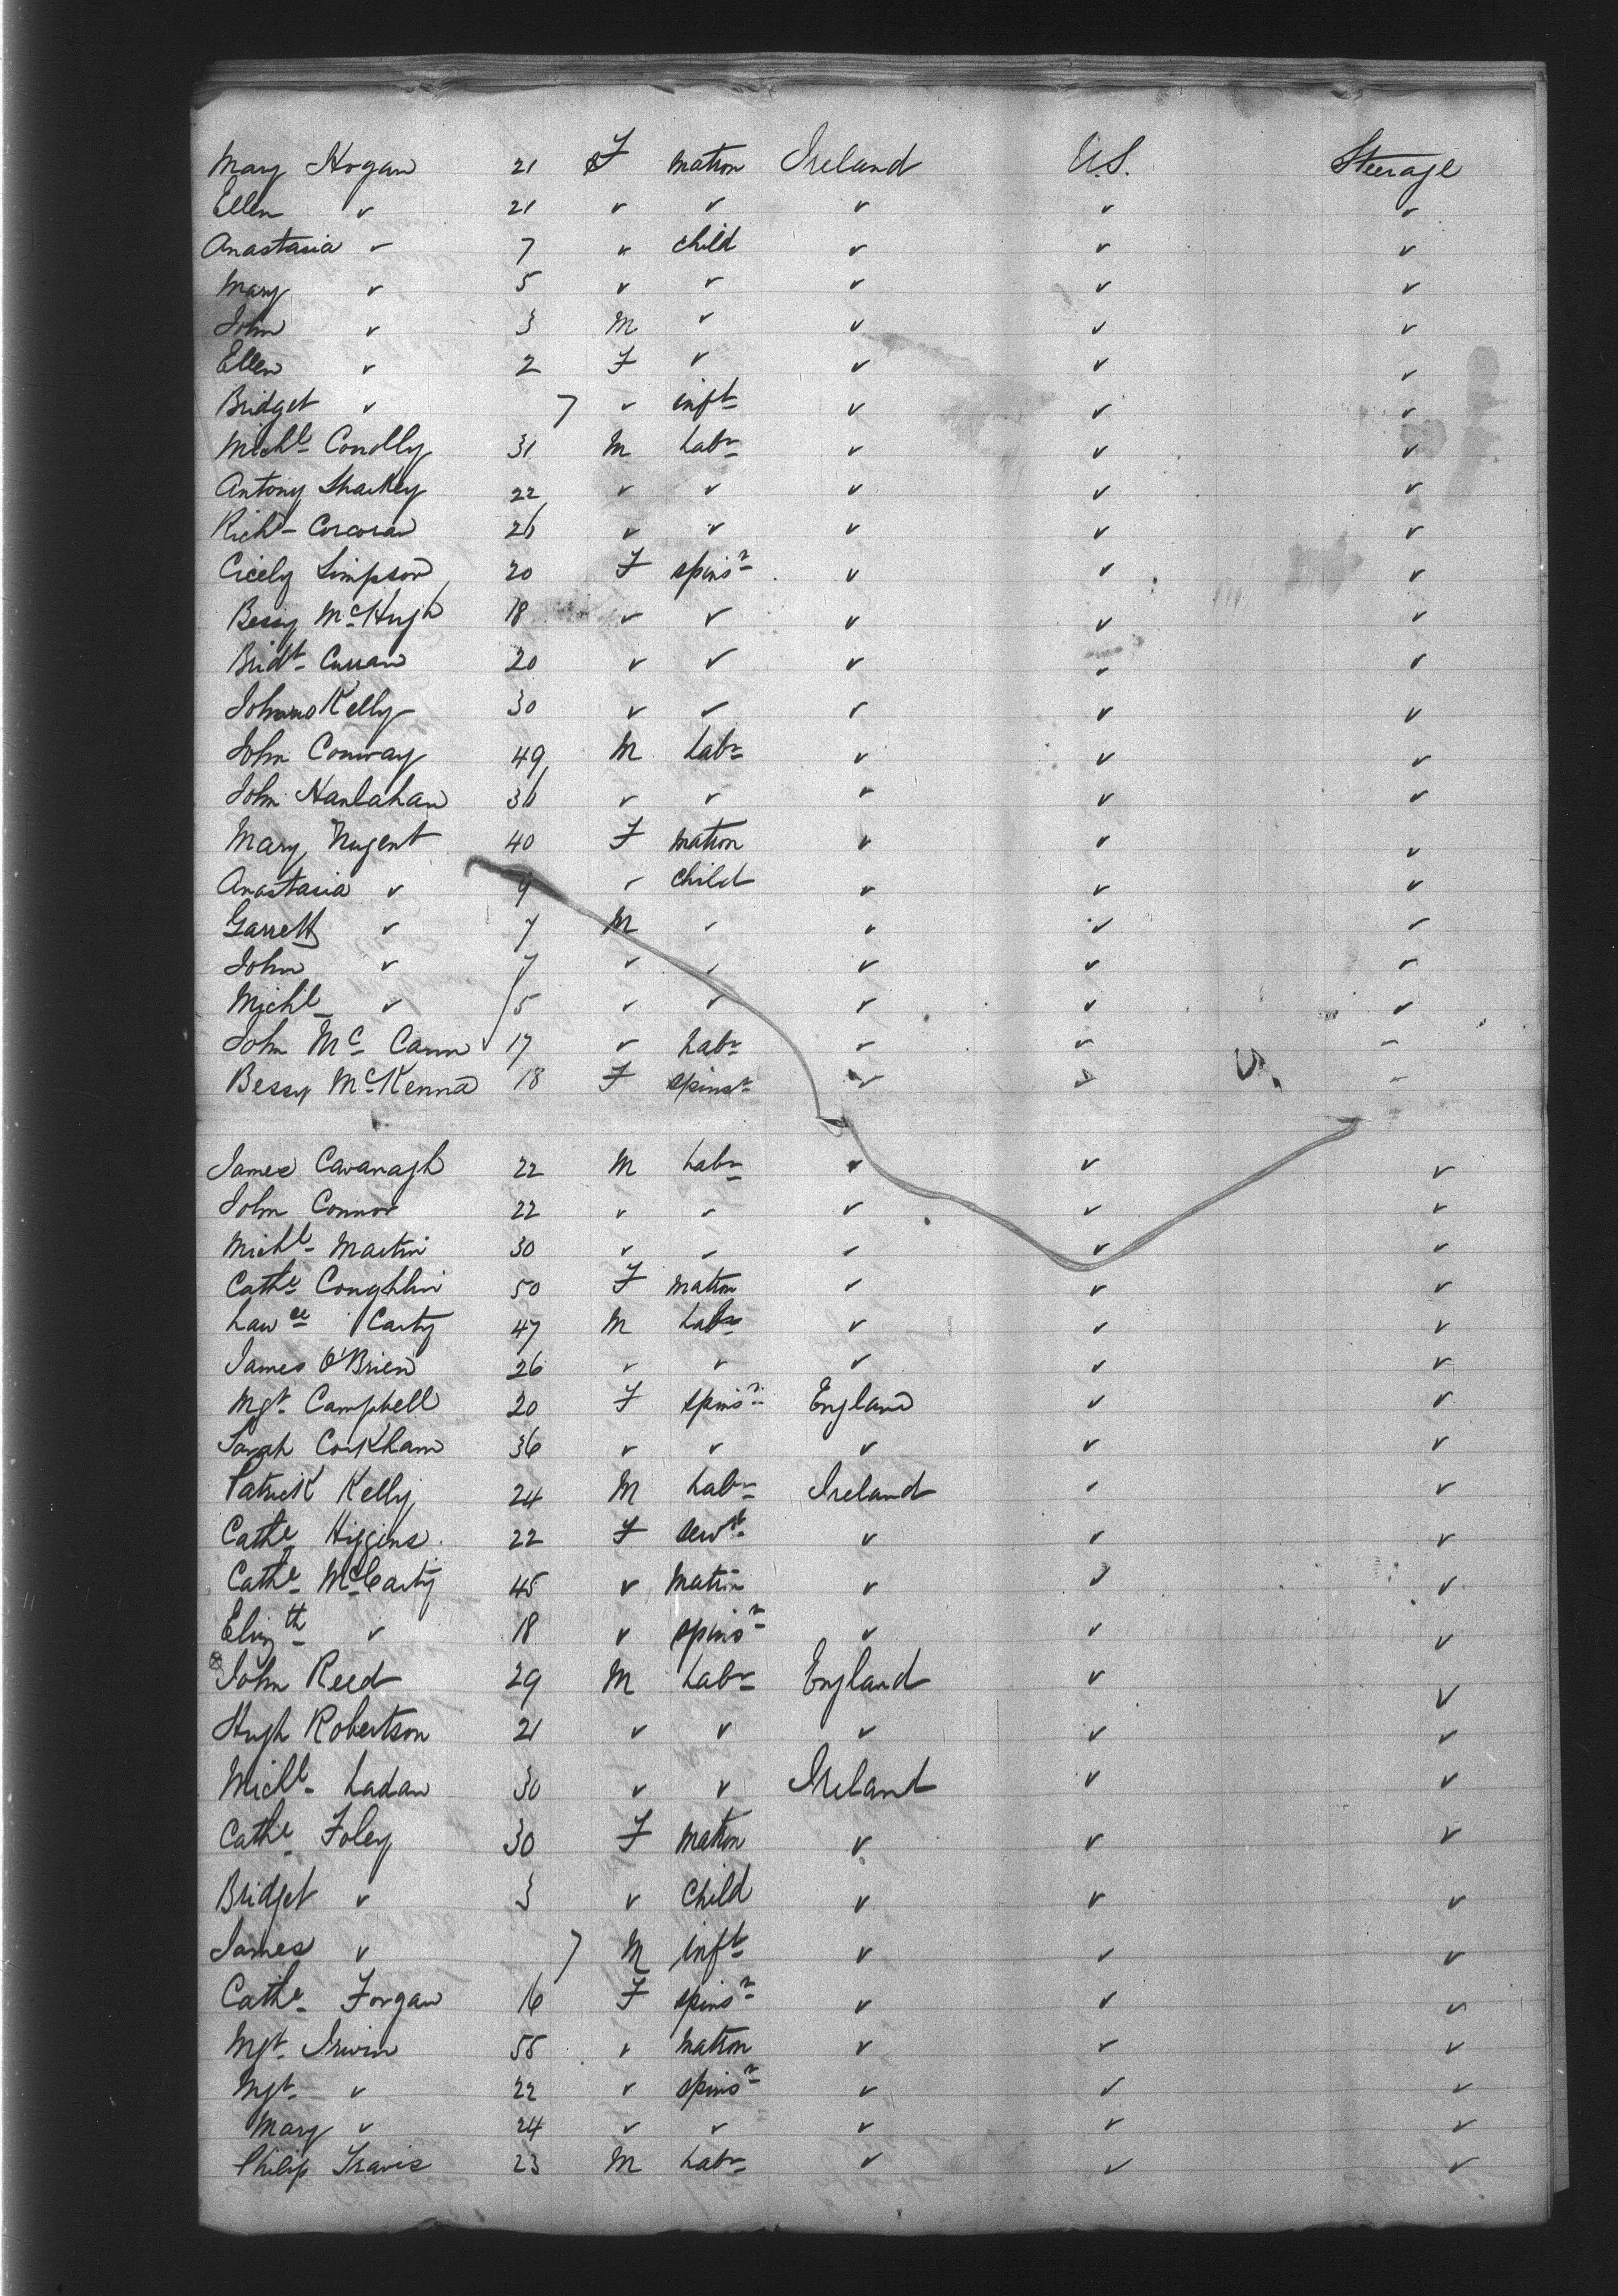 Mary Hogan 21 F matron Ireland U.S. Steerage
Ellen " 21 " " " " "
Anastasia " 7 " child " " "
Mary " 5 " " " " "
John " 3 M " " " "
Ellen " 2 F " " " "
Bridget " 7 " inft " " "
Michl Conolly 31 M Labr " " "
Antony Sharkey 22 " " " " "
Richd Corcoran 26 " " " " "
Cicely Simpson 20 F spinsr " " "
Bessy McHugh 18 " " " " "
Bridt Curran 20 " " " " "
Kelly 30 " " " " "
John Conway 49 M Labr " " "
John Hanlahan 36 " " " " "
Mary Nugent 40 F matron " " "
Anastasia " 9 " child " " "
Garrett " 7 M " " " "
John " 7 " " " " "
Michl " 5 " " " " "
John McCann 17 " Labr " " "
Bessy McKenna 18 F spinsr " " "
James Cavanagh 22 M Labr " " "
John Connor 22 " " " " "
Michl Martin 30 " " " " "
Cathe Coughlin 50 F matron " " "
Lawce Carty 47 M Labr " " "
James O'Brien 26 " " " " "
Mgt Campbell 20 F spinsr England " "
Sarah Corkham 36 " " " " "
Patrick Kelly 24 M Labr Ireland " "
Cathe Higgins 22 F servt " " "
Cathe McCarty 45 " Matron " " "
Elizth " 18 " spinsr " " "
John Reed 29 M Labr England " "
Hugh Robertson 21 " " " " "
Michl Ladan 30 " " Ireland " "
Cathe Foley 30 F Matron " " "
Bridget " 3 " Child " " "
James " 7 M inft " " "
Cathe Forgan 16 F spinsr " " "
Mgt Irwin 55 " Matron " " "
Mgt " 22 " spinsr " " "
Mary " 24 " " " " "
Philip Travis 23 M Labr " " "